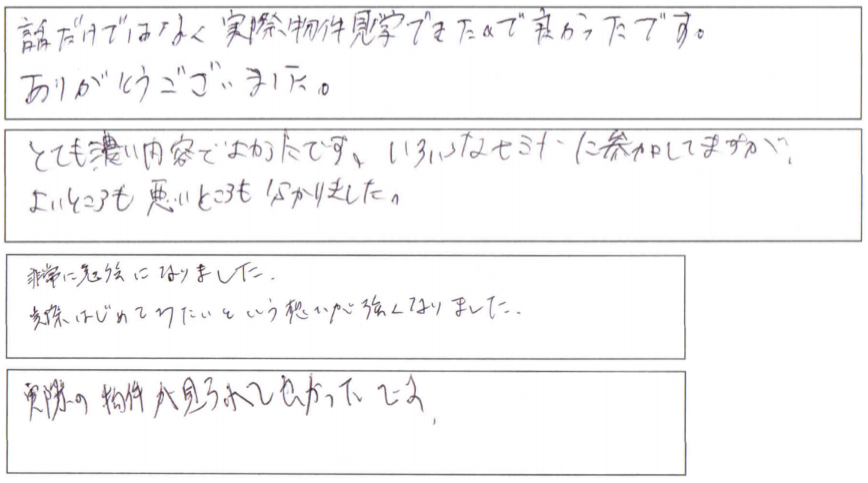 話だけではなく実際物件見学できたので良かったです。
ありがとうございました。
とても濃い内容でよかったです、いろいろなセミナーに参加してますが、
よいところも悪いところも分かりました。
非常に勉強になりました.
実際はじめてみたいという想いが強くなりました.
実際の物件が見られて良かったです.